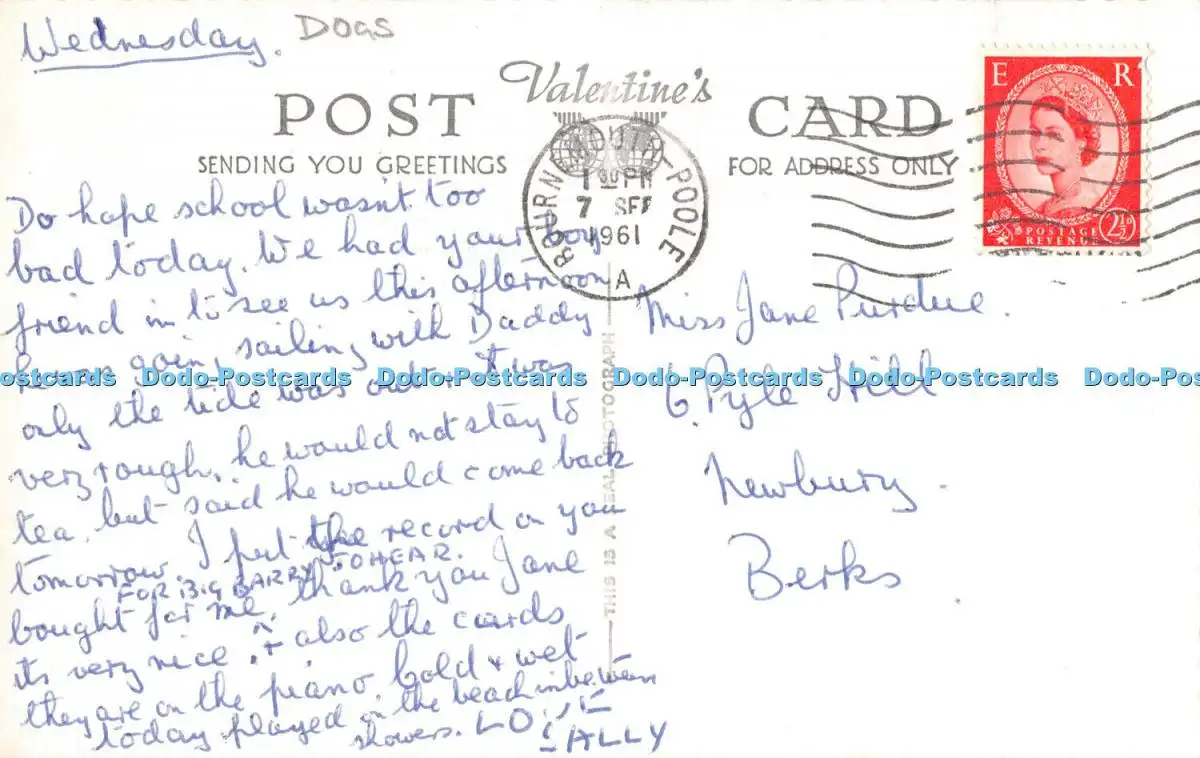 Wednesday. DOGS
Valentine's
POST CARD
SENDING YOU GREETINGS
FOR ADDRESS ONLY
E R
POSTAGE
REVENUE
2½D
BOURN T-POOLE
1 30 PM
7 SEP
1961
A
Do hope school wasn't too
bad today. We had your boy
friend in to see us this afternoon
he was going sailing with Daddy
only the tide was out & it was
very rough, he would not stay to
tea, but said he would come back
tomorrow. I put the record on you
FOR BIG BARRY TO HEAR.
bought for me, thank you Jane
its very nice. & also the cards
they are on the piano. Cold & wet
today played on the beach inbetween
showers. LOVE
SALLY
THIS IS A REAL PHOTOGRAPH
Miss Jane Purdue.
6 Pyle Hill
Newbury.
Berks.
Dodo-Postcards Dodo-Postcards Dodo-Postcards Dodo-Postcards Dodo-Postcards Dodo-Postcards